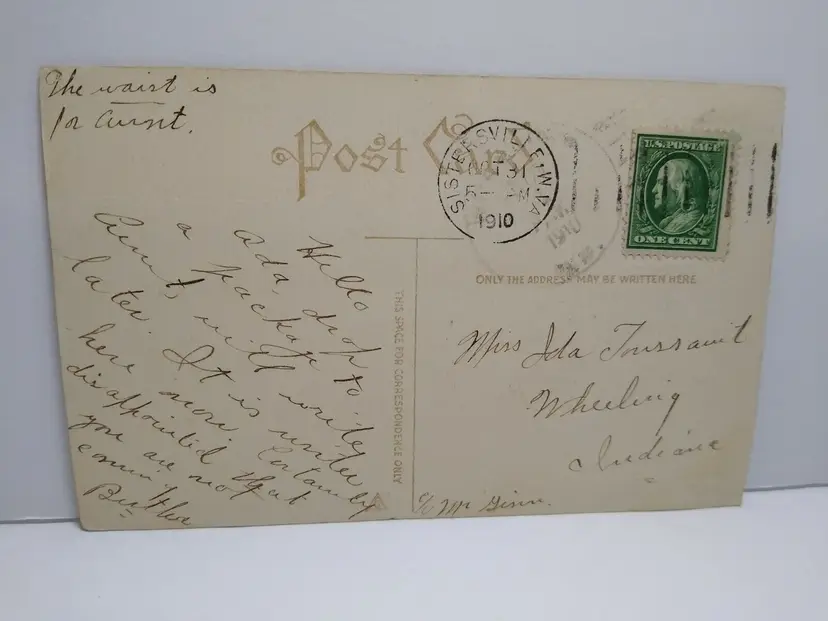 The waist is
for Aunt.
Post Card
SISTERSVILLE, W.VA.
OCT 31
5 — PM
1910
U.S. POSTAGE
ONE CENT
ONLY THE ADDRESS MAY BE WRITTEN HERE
THIS SPACE FOR CORRESPONDENCE ONLY
Hello
Ada, drop
a package to
Aunt, will write
later. It is winter
here now. Certainly
disappointed that
you are not
coming
Miss Ida Toussaint
Wheeling
Indiana
c/o Mr Ginn.